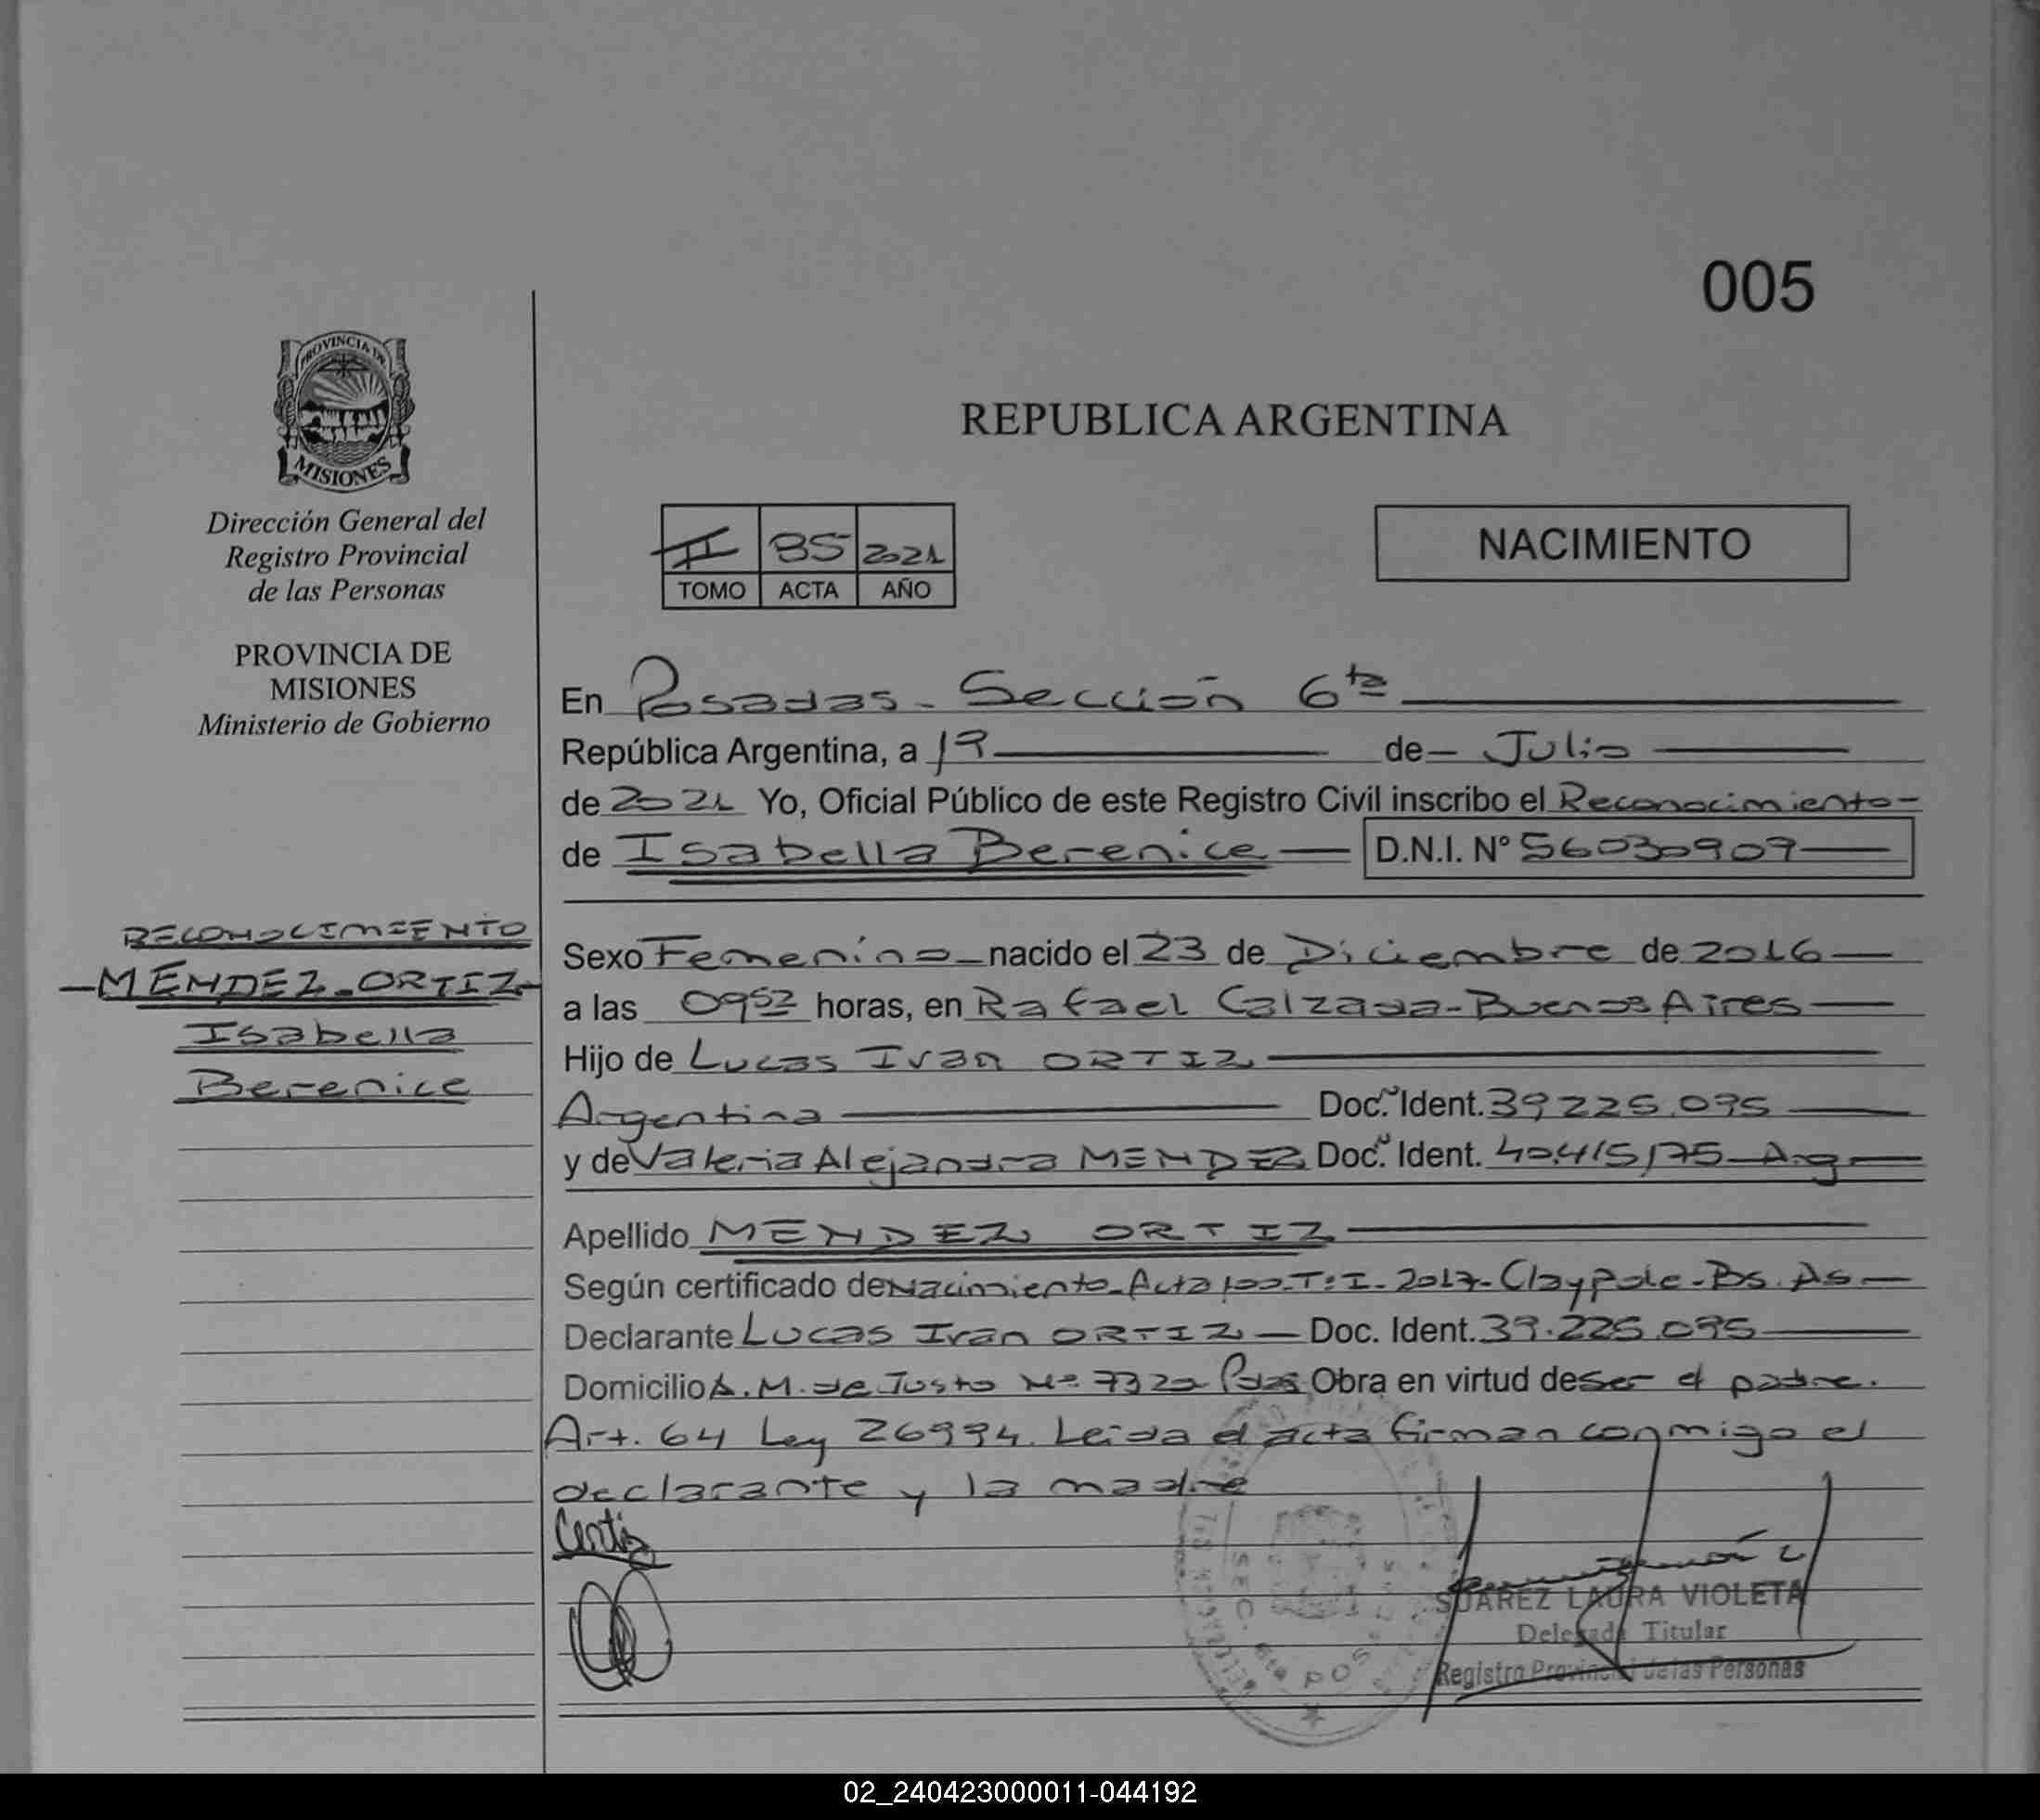 005
PROVINCIA DE
MISIONES
REPUBLICA ARGENTINA
Dirección General del
Registro Provincial
de las Personas
PROVINCIA DE
MISIONES
Ministerio de Gobierno
II 85 2021
TOMO ACTA AÑO
NACIMIENTO
En Posadas - Sección 6ta
República Argentina, a 19 de Julio
de 2021 Yo, Oficial Público de este Registro Civil inscribo el Reconocimiento
de Isabella Berenice D.N.I. Nº 56030909
RECONOCIMIENTO
MENDEZ ORTIZ
Isabella
Berenice
Sexo Femenino nacido el 23 de Diciembre de 2016
a las 09 52 horas, en Rafael Calzada - Buenos Aires
Hijo de Lucas Ivan ORTIZ
Argentina Doc. Ident. 39225.095
y de Valeria Alejandra MENDEZ Doc. Ident. 40.415175 - Arg
Apellido MENDEZ ORTIZ
Según certificado de Nacimiento - Acta 100 - T: I - 2017 - Claypole - Bs. As
Declarante Lucas Ivan ORTIZ Doc. Ident. 39.225.095
Domicilio A. M. de Justo Nº 7320 Pdas Obra en virtud de ser el padre.
Art. 64 Ley 26994. Leida el acta firman conmigo el
declarante y la madre
SUAREZ LAURA VIOLETA
Delegada Titular
Registro Provincial de las Personas
SEC. 6ta POS
02_240423000011-044192